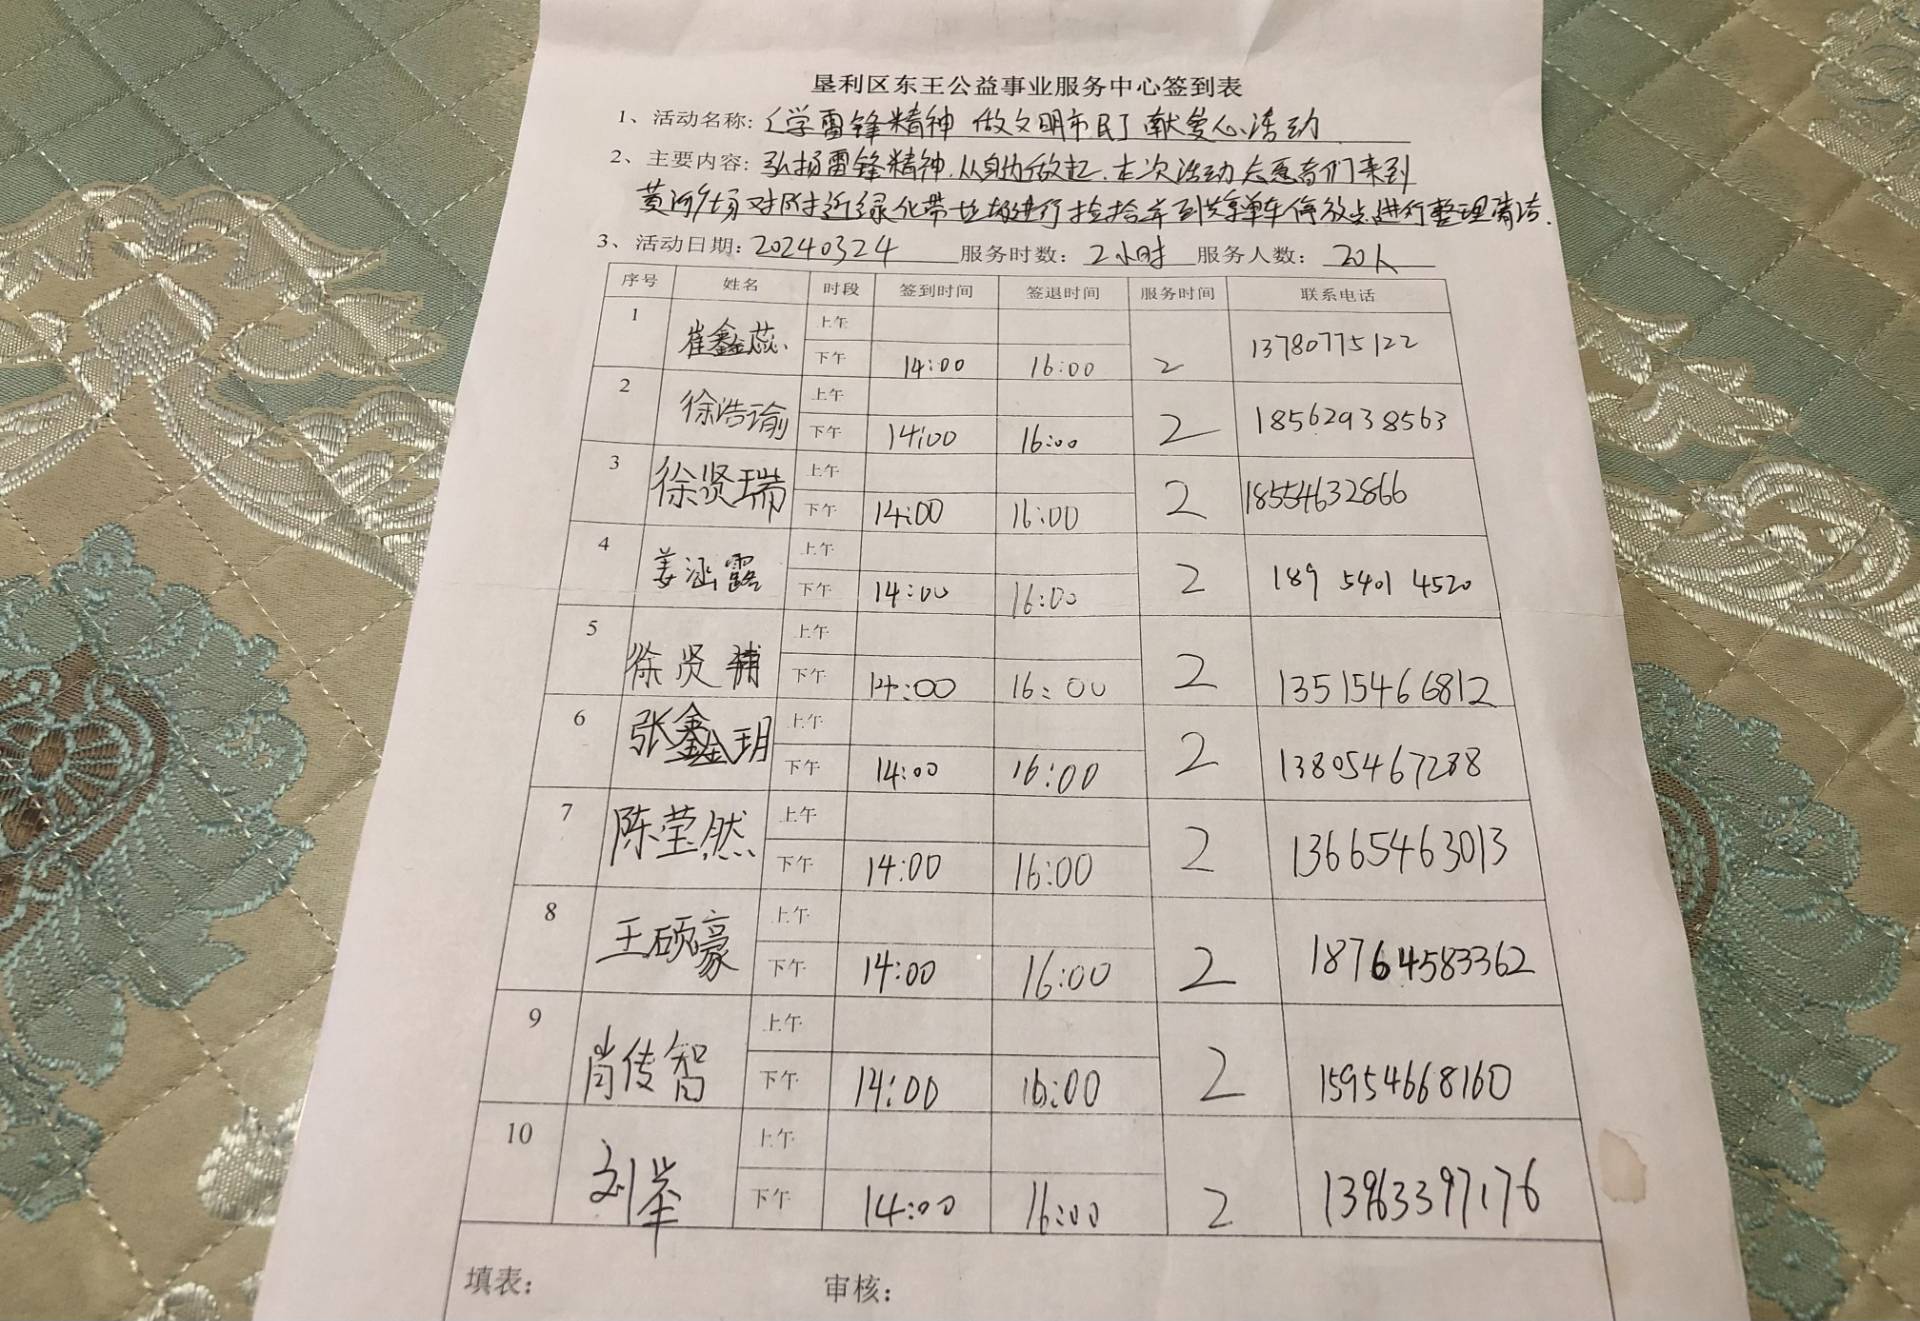 垦利区东王公益事业服务中心签到表
1、活动名称:《学雷锋精神 做文明市民》献爱心活动
2、主要内容:弘扬雷锋精神.从身边做起.本次活动志愿者们来到
黄河广场对附近绿化带垃圾进行捡拾并到共享单车停放点进行整理清洁.
3、活动日期:20240324 服务时数:2小时 服务人数:20人
序号 姓名 时段 签到时间 签退时间 服务时间 联系电话
1 崔鑫蕊 上午
下午 14:00 16:00 2 13780775122
2 徐浩瑜 上午
下午 14:00 16:00 2 18562938563
3 徐贤瑞 上午
下午 14:00 16:00 2 18554632866
4 姜涵露 上午
下午 14:00 16:00 2 189 5401 4520
5 徐贤 上午
下午 14:00 16:00 2 13515466812
6 张鑫玥 上午
下午 14:00 16:00 2 13805467288
7 陈莹然 上午
下午 14:00 16:00 2 13665463013
8 王硕豪 上午
下午 14:00 16:00 2 18764583362
9 肖传智 上午
下午 14:00 16:00 2 15954668160
10 刘举 上午
下午 14:00 16:00 2 13963397176
填表: 审核: